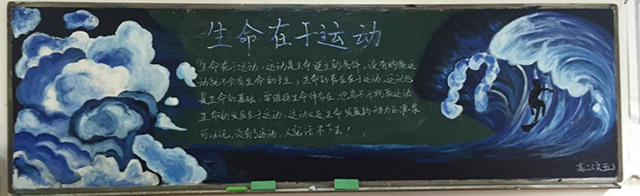 生命在于运动
生命在于运动,运动是生命诞生的条件,没有物质运
动就不会有生命的产生,生命的存在在于运动,运动也
是生命的基础,要维持生命体存在,也离不开物质运动
生命的发展在于运动,运动又是生命发展的动力与源泉
可以说,没有了运动,人就活不下去!
高二(文五)